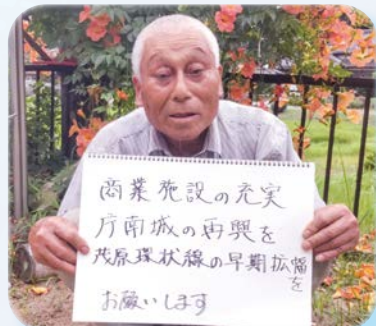 商業施設の充実
庁南城の再興を
茂原環状線の早期拡幅を
お願いします